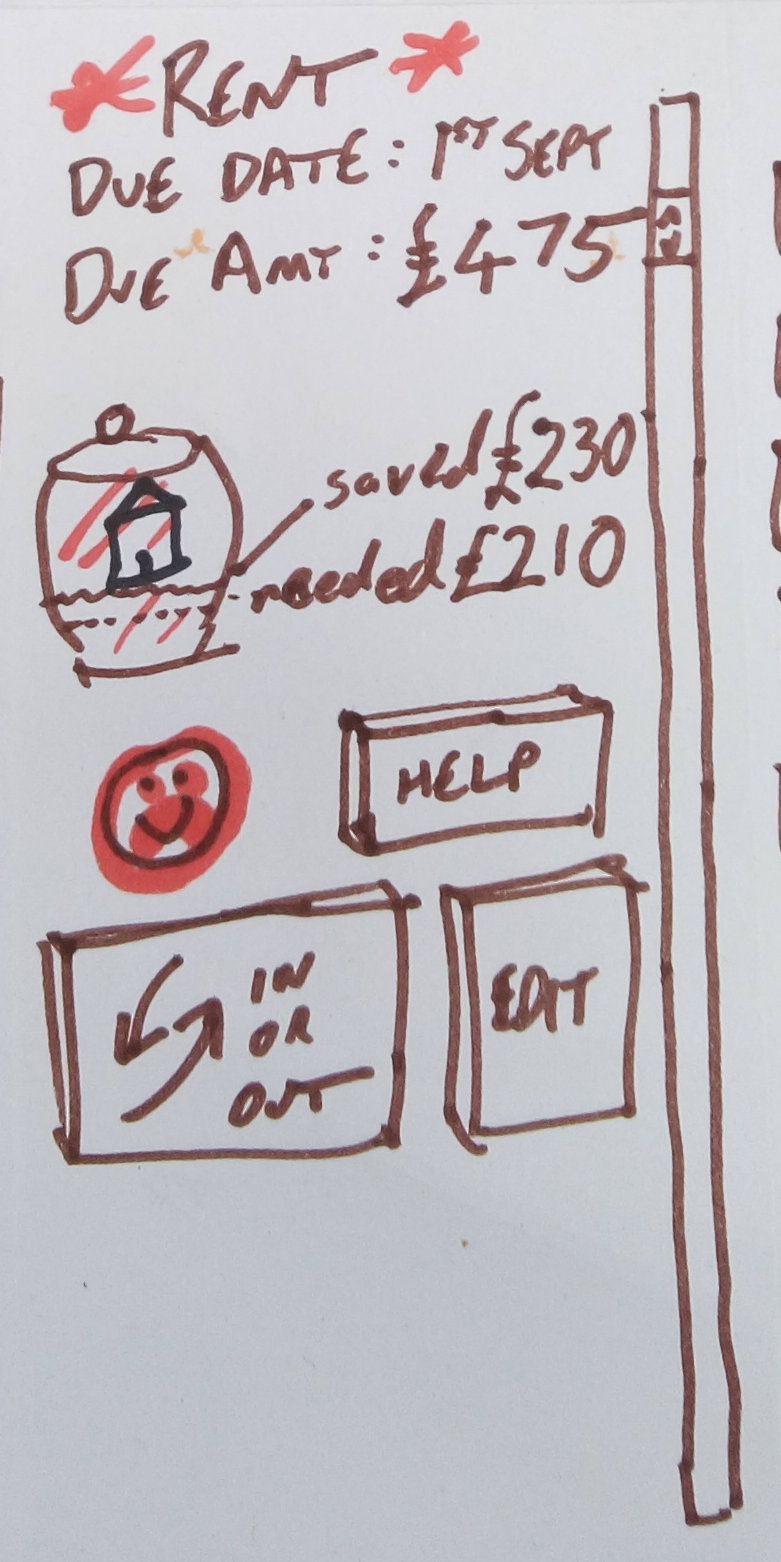 RENT
DUE DATE: 1ST SEPT
DUE AMT: £475
saved £230
needed £210
HELP
IN
OR
OUT
EDIT